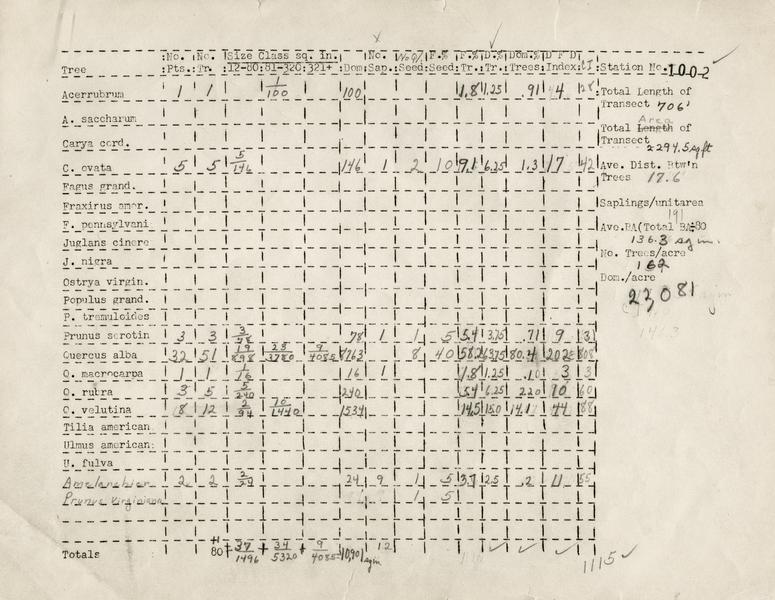 No. No. Size Class sq. in. No. No of F.% F.% D.% Dom.% D F D
Tree Pts. Tr. 12-80 81-320 321+ Dom Sap. Seed: Seed: Tr. Tr. Trees: Index CI Station No. 1002
Acerrubrum 1 1 1/100 100 1.8 1.25 .91 4 28 Total Length of
Transect 706'
A. saccharum
Area
Total Length of
Carya cord. Transect 2294.5 sq ft
C. ovata 5 5 5/146 146 1 2 10 9.1 6.25 1.3 17 42 Ave. Dist. Btw'n
Trees 17.6
Fagus grand.
Fraxinus amer. Saplings/unitarea
191
F. pennsylvani Ave.BA(Total BA÷80
Juglans cinere 136.3 sq in.
J. nigra No. Trees/acre
162
Ostrya virgin. Dom./acre
Populus grand. 23,081
P. tremuloides
Prunus serotin 3 3 3/78 78 1 1 5 5.4 3.75 .71 9 31
Quercus alba 32 51 19/898 23/3780 9/4085 8763 8 40 58.2 63.75 80.4 202 808
Q. macrocarpa 1 1 1/16 16 1 1.8 1.25 .10 3 3
Q. rubra 3 5 5/240 240 5.4 6.25 2.20 10 60
Q. velutina 8 12 2/94 10/1440 1534 14.5 15.0 14.1 44 88
Tilia american
Ulmus american:
U. fulva
Amelanchier 2 2 2/29 24 9 1 5 3.7 2.5 .2 11 55
Prunus Virginiana 1 5
Totals 80 37/1496 + 34/5320 + 9/4085 = 10,901 sq in 12
1115